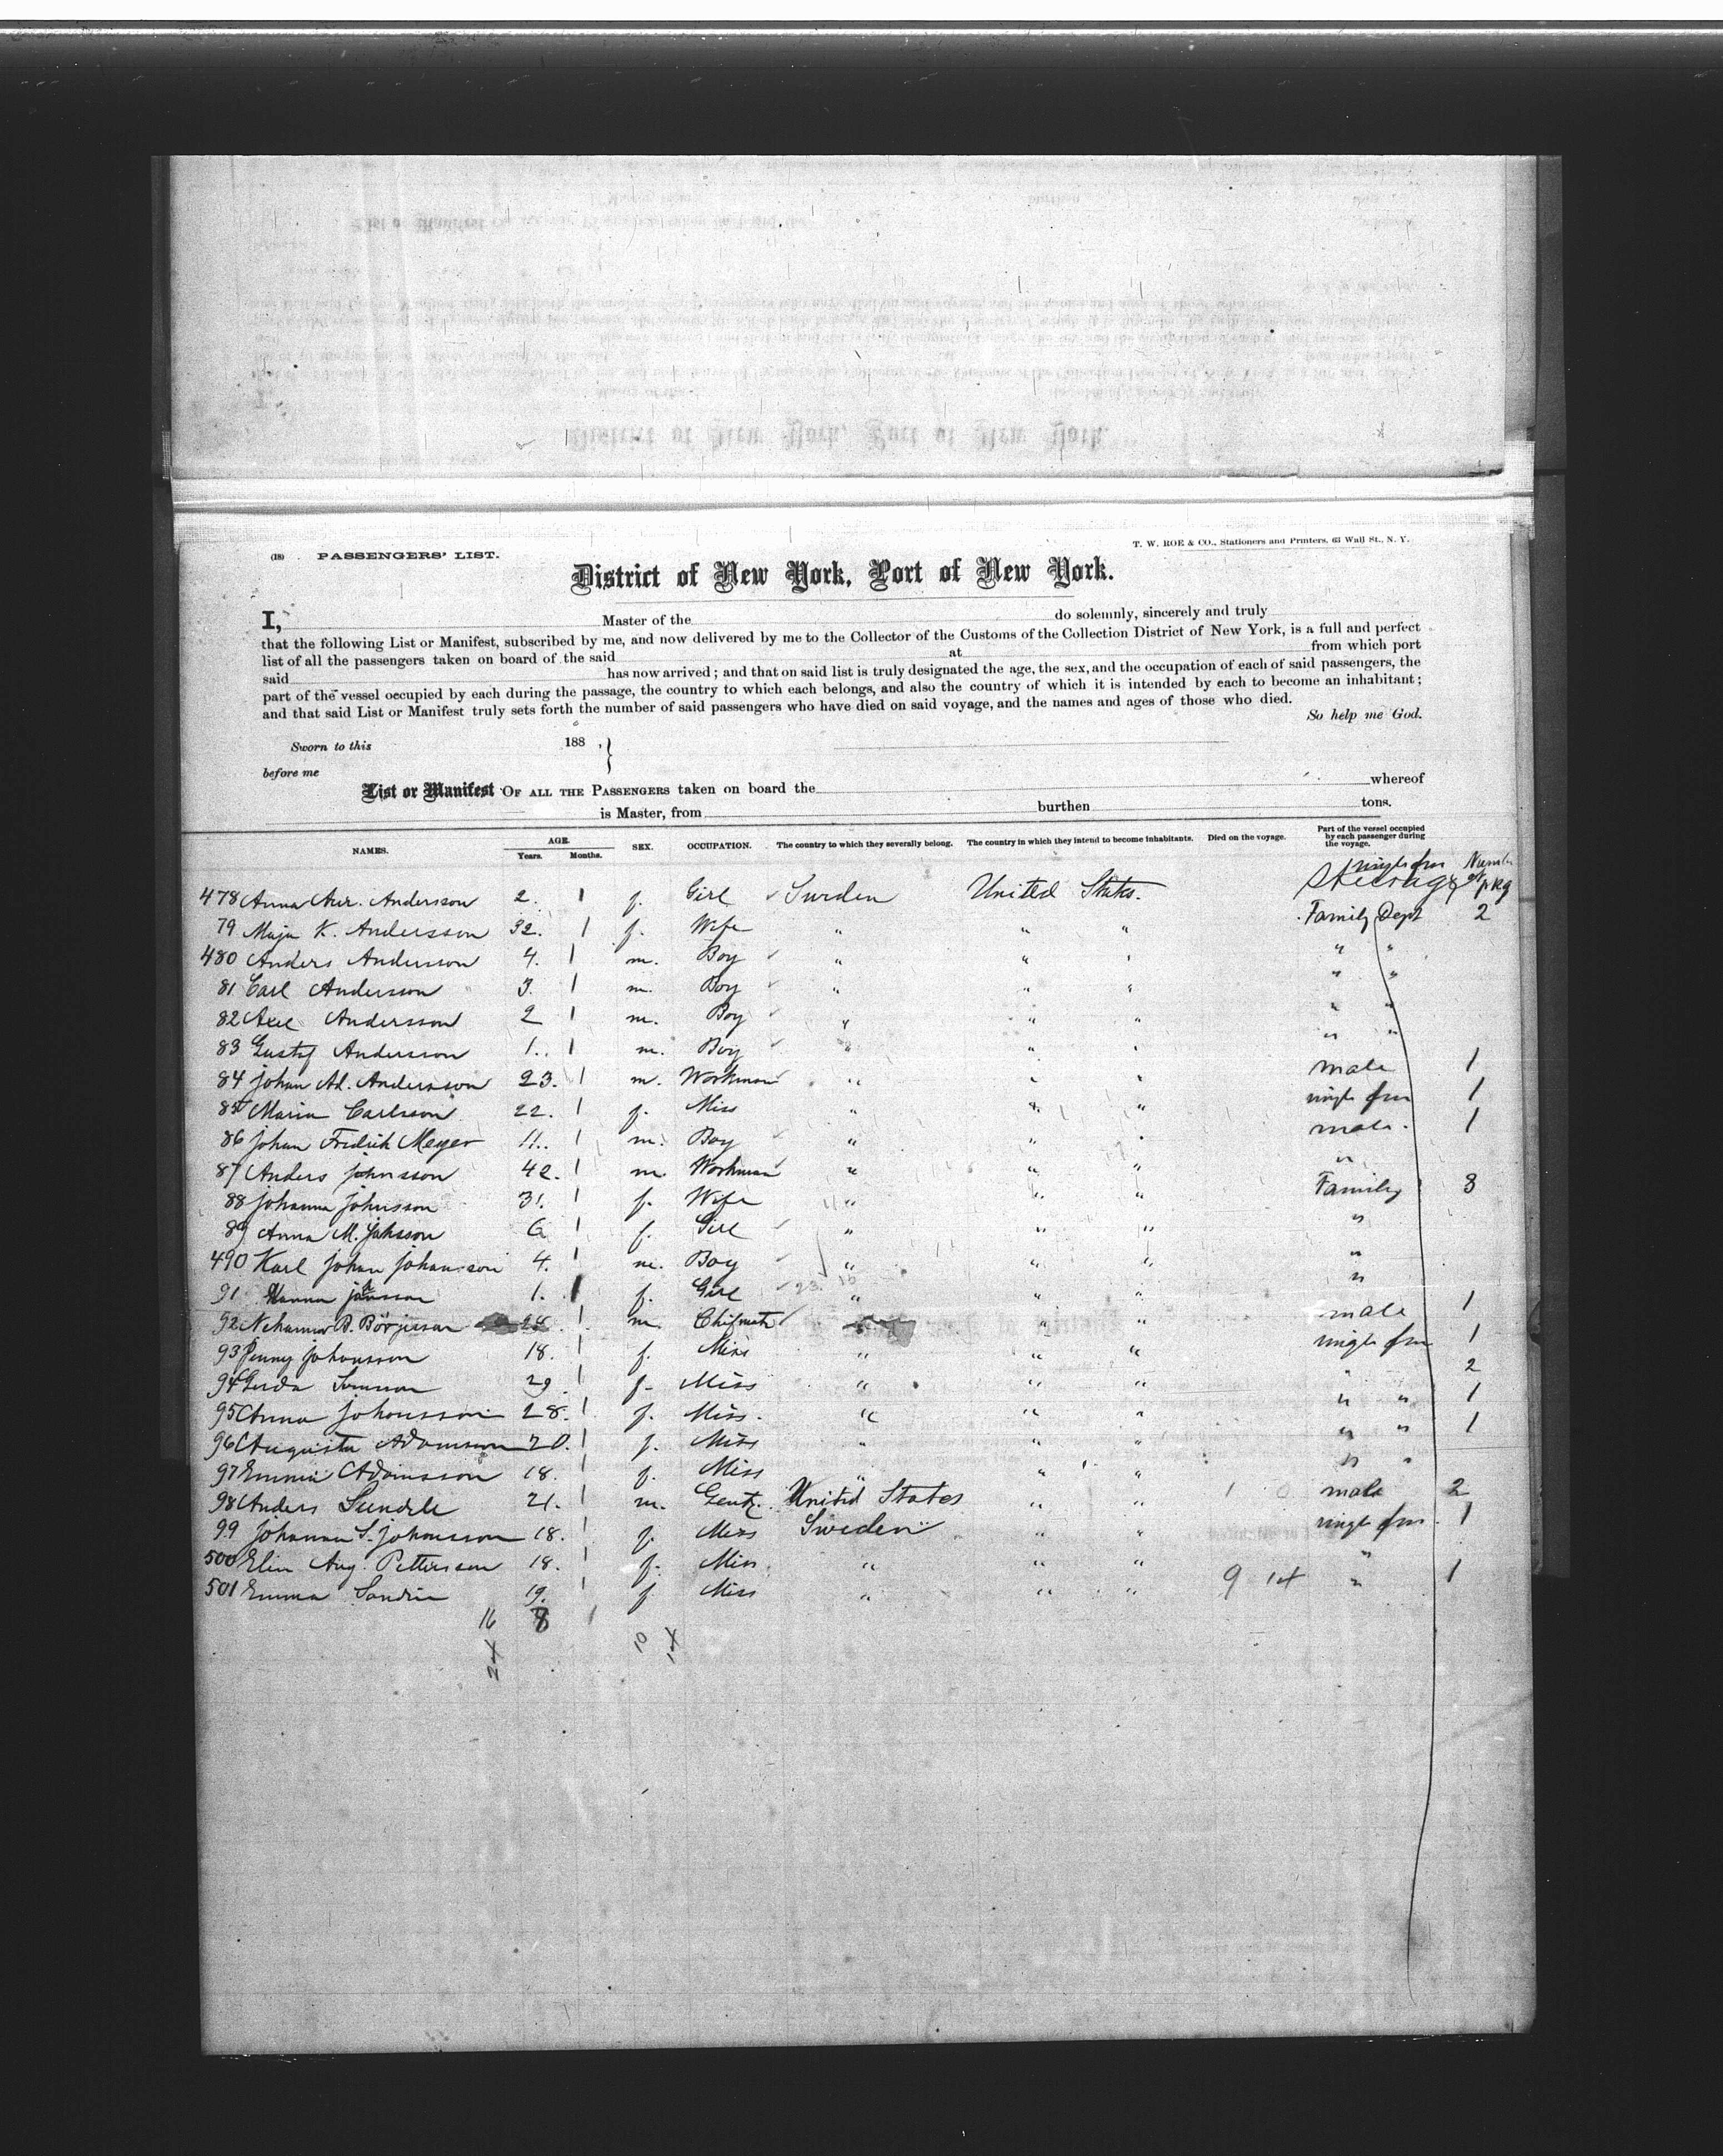 (18) PASSENGERS' LIST. T. W. ROE & CO., Stationers and Printers, 63 Wall St., N. Y.
District of New York, Port of New York.
I, Master of the do solemnly, sincerely and truly
that the following List or Manifest, subscribed by me, and now delivered by me to the Collector of the Customs of the Collection District of New York, is a full and perfect
list of all the passengers taken on board of the said at from which port
said has now arrived; and that on said list is truly designated the age, the sex, and the occupation of each of said passengers, the
part of the vessel occupied by each during the passage, the country to which each belongs, and also the country of which it is intended by each to become an inhabitant;
and that said List or Manifest truly sets forth the number of said passengers who have died on said voyage, and the names and ages of those who died.
So help me God.
Sworn to this 188 , }
before me
List or Manifest OF ALL THE PASSENGERS taken on board the whereof
is Master, from burthen tons.
NAMES. AGE. Years. Months. SEX. OCCUPATION. The country to which they severally belong. The country in which they intend to become inhabitants. Died on the voyage. Part of the vessel occupied by each passenger during the voyage.
Steerage pkg
478 Anna Andersson 2. 1 f. Girl Sweden United States.
79 Maja K. Andersson 32. 1 f. Wife " " " Family Dept 2
480 Anders Andersson 4. 1 m. Boy " " " " "
81 Carl Andersson 3. 1 m. Boy " " " " "
82 Axel Andersson 2 1 m. Boy " " " " "
83 Gustaf Andersson 1. 1 m. Boy " " " " "
84 Johan Ad. Andersson 23. 1 m. Workman " " " male 1
85 Maria Carlsson 22. 1 f. Miss " " " single 1
86 Johan Fredrik Meyer 11. 1 m. Boy " " " male. 1
87 Anders Johnsson 42. 1 m. Workman " " " "
88 Johanna Johnsson 31. 1 f. Wife " " " Family 3
89 Anna M. 6 1 f. Girl " " " "
490 Karl Johan Johansson 4. 1 m. Boy " " " "
91 Hanna 1. 1 f. Girl " " " "
92 B. Börjesson 1 m. " " male 1
93 Jenny Johansson 18. 1 f. Miss " " " single 1
94 Gerda 29 1 f. Miss " " " " 2
95 Anna Johansson 28. 1 f. Miss. " " " " " 1
96 Augusta Adamsson 20. 1 f. Miss " " " " " 1
97 Emma Adamsson 18. 1 f. Miss " " " " "
98 Anders 21. 1 m. Gentl. United States " " male 2
99 Johanna S. Johansson 18. 1 f. Miss Sweden " " single 1
500 Elin Aug. Pettersson 18. 1 f. Miss " " " "
501 Emma Sandin 19. 1 f. Miss " " " 9 14 " 1
16 8
24 10 14